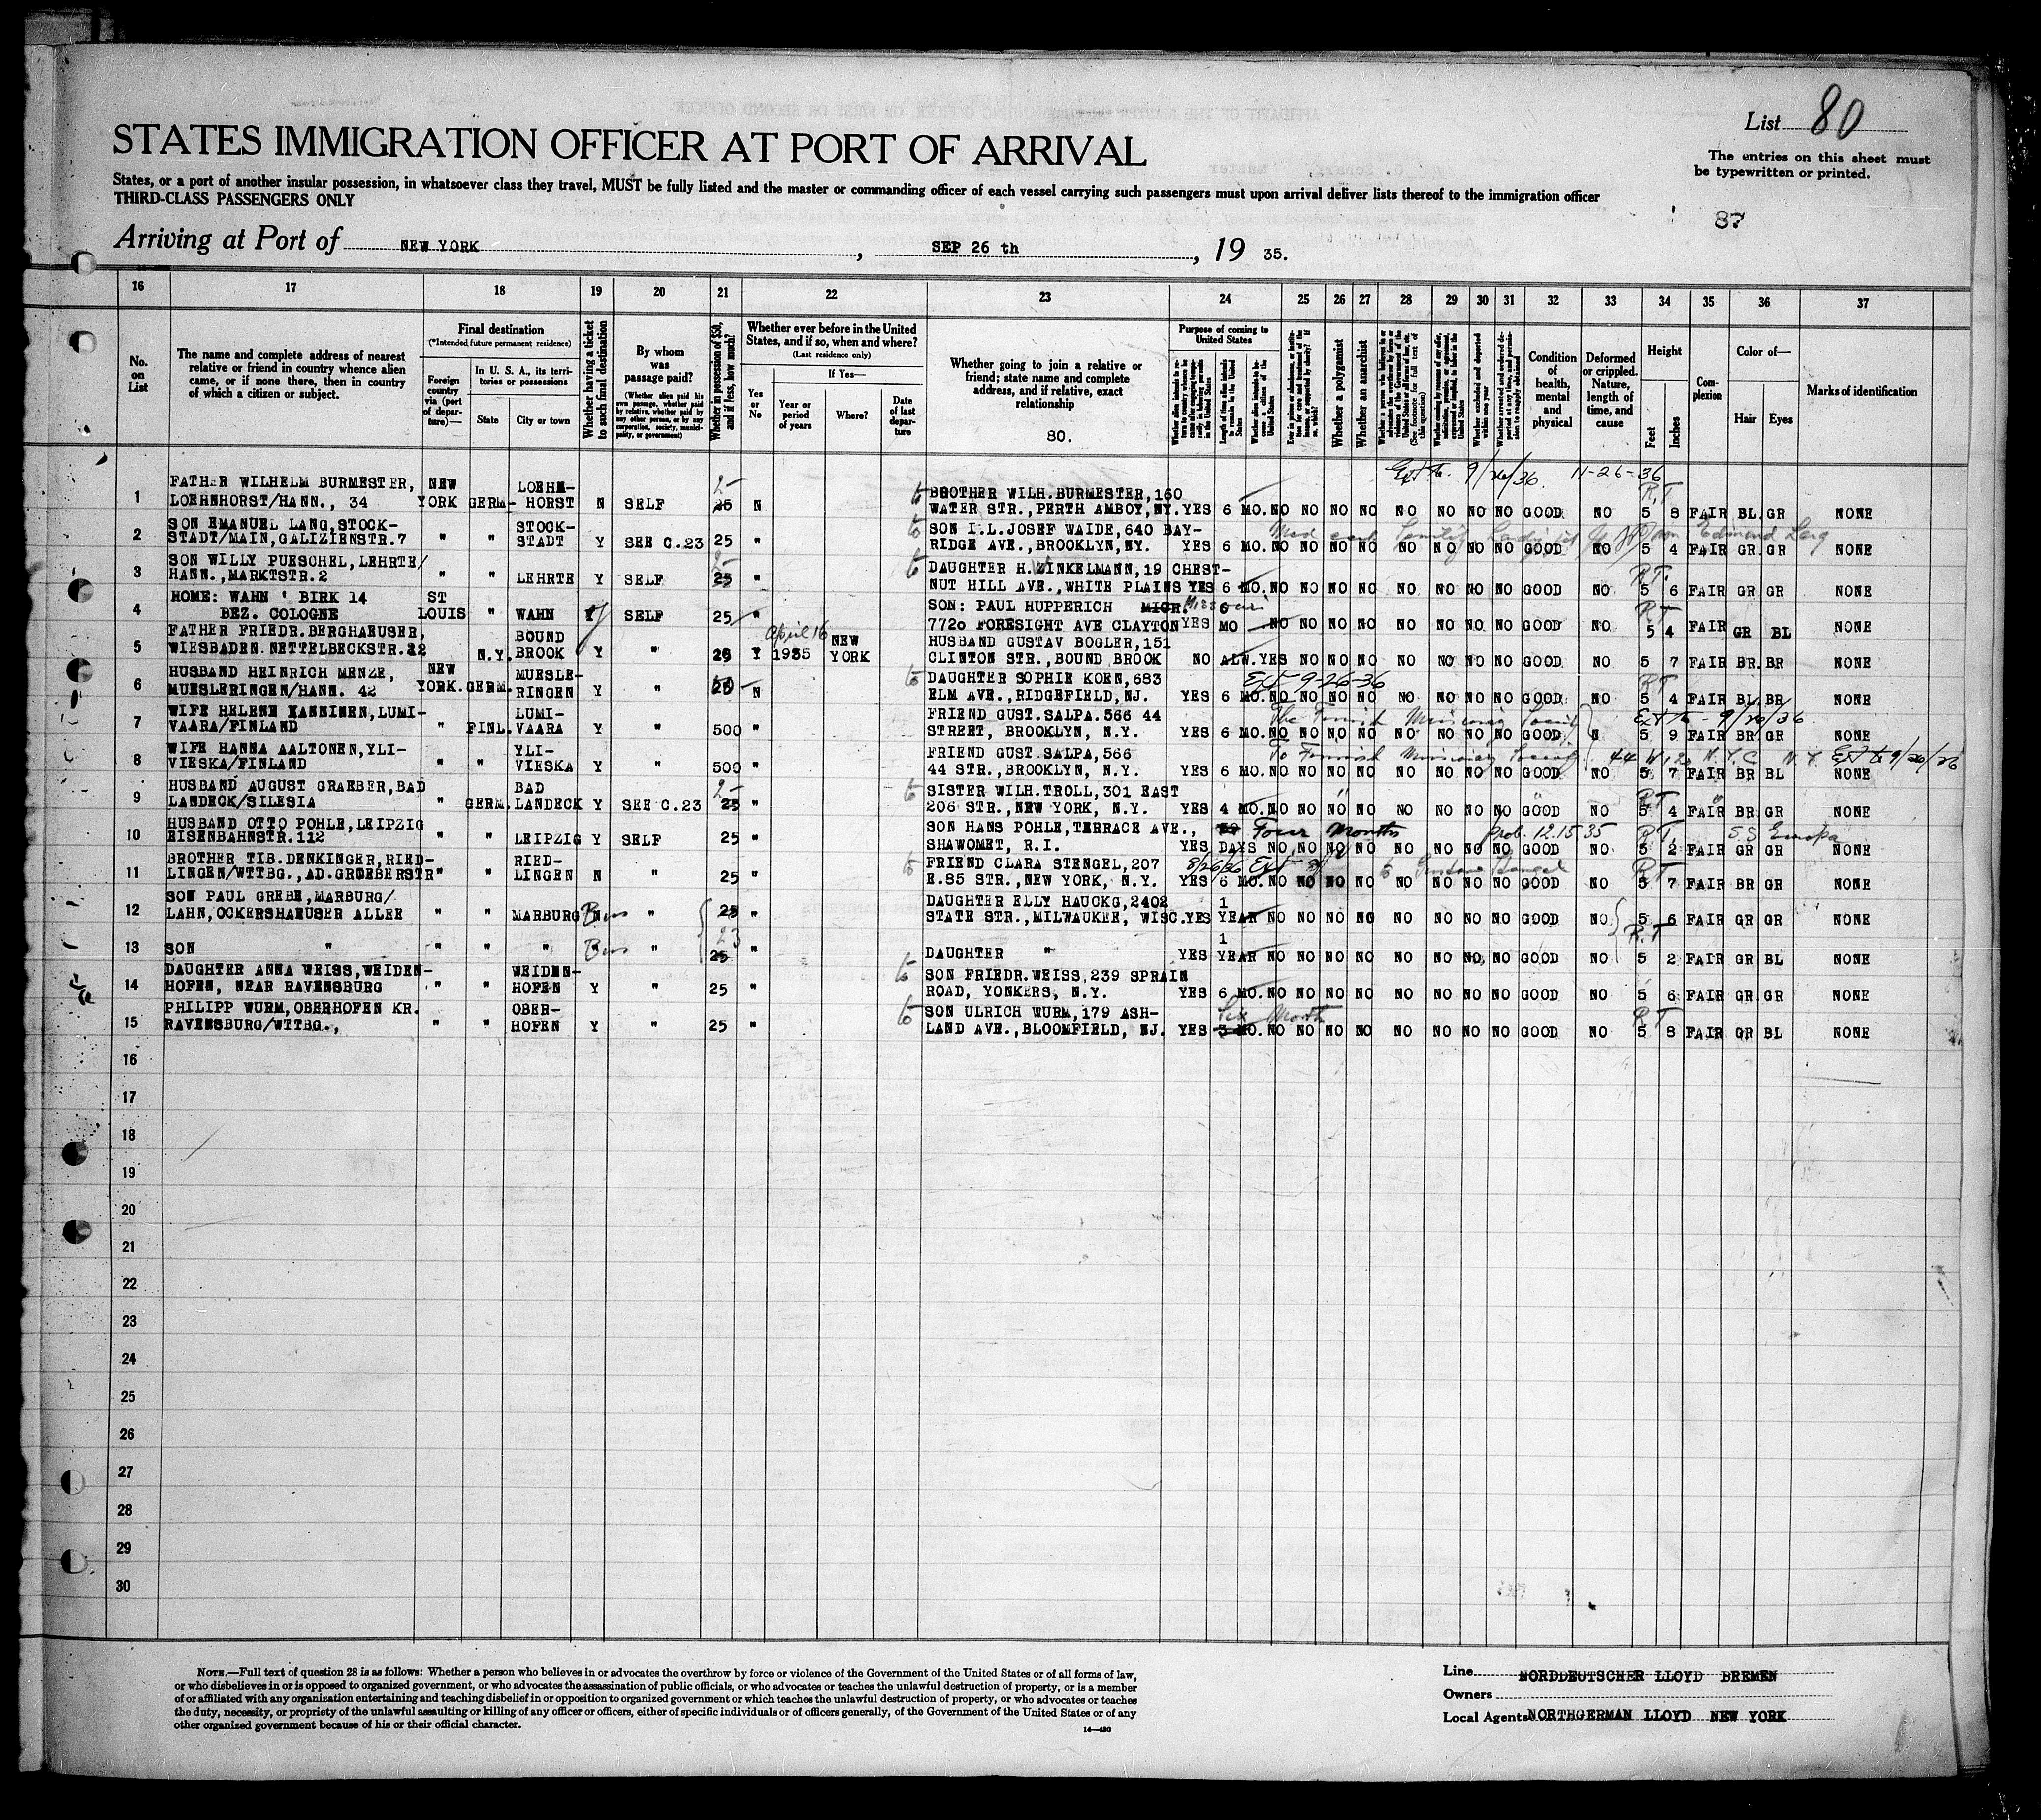 List 80
STATES IMMIGRATION OFFICER AT PORT OF ARRIVAL
The entries on this sheet must
be typewritten or printed.
States, or a port of another insular possession, in whatsoever class they travel, MUST be fully listed and the master or commanding officer of each vessel carrying such passengers must upon arrival deliver lists thereof to the immigration officer
THIRD-CLASS PASSENGERS ONLY
87
Arriving at Port of NEW YORK, SEP 26 th, 19 35.
16 17 18 19 20 21 22 23 24 25 26 27 28 29 30 31 32 33 34 35 36 37
No. on List
The name and complete address of nearest relative or friend in country whence alien came, or if none there, then in country of which a citizen or subject.
Final destination
(*Intended future permanent residence)
Foreign country via (port of departure)—
In U. S. A., its territories or possessions
State
City or town
Whether having a ticket to such final destination
By whom was passage paid?
(Whether alien paid his own passage, whether paid by relative, whether paid by any other person, or by any corporation, society, municipality, or government)
Whether in possession of $50, and if less, how much?
Whether ever before in the United States, and if so, when and where?
(Last residence only)
Yes or No
If Yes—
Year or period of years
Where?
Date of last departure
Whether going to join a relative or friend; state name and complete address, and if relative, exact relationship
80.
Purpose of coming to United States
Whether a polygamist
Whether an anarchist
Condition of health, mental and physical
Deformed or crippled. Nature, length of time, and cause
Height
Feet
Inches
Complexion
Color of—
Hair
Eyes
Marks of identification
Ext to 9/26/36. 11-26-36
1 FATHER WILHELM BURMESTER, LOEHNHORST/HANN., 34 NEW YORK GERM- LOEHN-HORST N SELF 25 N BROTHER WILH.BURMESTER,160 WATER STR.,PERTH AMBOY,NY. YES 6 MO. NO NO NO NO NO NO NO NO GOOD NO 5 8 FAIR BL. GR NONE
2 SON EMANUEL LANG,STOCK-STADT/MAIN,GALIZIENSTR.7 " " STOCK-STADT Y SEE C.23 25 " SON I.L.JOSEF WAIDE,640 BAY-RIDGE AVE.,BROOKLYN,NY. YES 6 MO. NO NO NO NO NO NO NO NO GOOD NO 5 4 FAIR GR. GR NONE
3 SON WILLY PUESCHEL,LEHRTE/HANN.,MARKTSTR.2 " " LEHRTE Y SELF 25 " DAUGHTER H.WINKELMANN,19 CHEST-NUT HILL AVE.,WHITE PLAINS YES 6 MO. NO NO NO NO NO NO NO NO GOOD NO 5 6 FAIR GR GR NONE
4 HOME: WAHN ' BIRK 14 BEZ. COLOGNE ST LOUIS " WAHN Y SELF 25 " SON: PAUL HUPPERICH MICR. Missouri 7720 FORESIGHT AVE CLAYTON YES 6 MO NO NO NO NO NO NO NO NO GOOD NO 5 4 FAIR GR BL NONE
5 FATHER FRIEDR.BERGHAEUSER, WIESBADEN.NETTELBECKSTR.22 N.Y. BOUND BROOK Y " 25 Y April 16 1935 NEW YORK HUSBAND GUSTAV BOGLER,151 CLINTON STR.,BOUND BROOK NO ALW. YES NO NO NO NO NO NO NO GOOD NO 5 7 FAIR BR. BR NONE
6 HUSBAND HEINRICH MENZE, MUESLERINGEN/HANN. 42 NEW YORK. GERM. MUESLE-RINGEN Y " 25 N DAUGHTER SOPHIE KOEN,683 ELM AVE.,RIDGEFIELD,NJ. YES 6 MO. Ext 9-26-36 NO NO NO NO NO NO NO NO GOOD NO 5 4 FAIR BL. BR. NONE
7 WIFE HELENE KANNINEN,LUMI-VAARA/FINLAND " FINL. LUMI-VAARA Y " 500 " FRIEND GUST.SALPA.566 44 STREET, BROOKLYN, N.Y. YES 6 MO. NO NO NO NO NO NO NO NO GOOD N 5 9 FAIR BR GR NONE
8 WIFE HANNA AALTONEN,YLI-VIESKA/FINLAND " " YLI-VIESKA Y " 500 " FRIEND GUST.SALPA,566 44 STR.,BROOKLYN, N.Y. YES 6 MO. NO NO NO NO NO NO NO NO GOOD NO 5 7 FAIR BR BL NONE
9 HUSBAND AUGUST GRAEBER,BAD LANDECK/SILESIA " GERM. BAD LANDECK Y SEE C.23 25 " SISTER WILH.TROLL,301 EAST 206 STR.,NEW YORK, N.Y. YES 4 MO. NO NO NO NO NO NO NO NO GOOD NO 5 4 FAIR BR GR NONE
10 HUSBAND OTTO POHLE,LEIPZIG EISENBAHNSTR.112 " " LEIPZIG Y SELF 25 " SON HANS POHLE,TERRACE AVE., SHAWOMET, R.I. YES DAYS Four Months prob. 12.15.35 S.S Europa NO NO NO NO NO NO NO NO GOOD NO 5 2 FAIR GR GR NONE
11 BROTHER TIB.DENKINGER,RIED-LINGEN/WTTBG.,AD.GROEBERSTR " " RIED-LINGEN N " 25 " FRIEND CLARA STENGEL,207 E.85 STR.,NEW YORK, N.Y. YES 6 MO. NO NO NO NO NO NO NO NO GOOD NO 5 7 FAIR BR GR NONE
12 SON PAUL GREBE,MARBURG/LAHN,OCKERSHAEUSER ALLEE " " MARBURG N Bus " 25 " DAUGHTER ELLY HAUCKG,2402 STATE STR.,MILWAUKEE, WISC. YES 1 YEAR NO NO NO NO NO NO NO NO GOOD NO 5 6 FAIR GR GR NONE
13 SON " " " " Bus " 25 " DAUGHTER " YES 1 YEAR NO NO NO NO NO NO NO NO GOOD NO 5 2 FAIR GR BL NONE
14 DAUGHTER ANNA WEISS,WEIDEN-HOFEN, NEAR RAVENSBURG " " WEIDEN-HOFEN Y " 25 " SON FRIEDR.WEISS,239 SPRAIN ROAD, YONKERS, N.Y. YES 6 MO. NO NO NO NO NO NO NO NO GOOD NO 5 6 FAIR GR GR NONE
15 PHILIPP WURM,OBERHOFEN KR. RAVENSBURG/WTTBG., " " OBER-HOFEN Y " 25 " SON ULRICH WURM,179 ASH-LAND AVE.,BLOOMFIELD, NJ. YES 3 MO. Six Month NO NO NO NO NO NO NO NO GOOD NO 5 8 FAIR GR BL NONE
16
17
18
19
20
21
22
23
24
25
26
27
28
29
30
NOTE.—Full text of question 28 is as follows: Whether a person who believes in or advocates the overthrow by force or violence of the Government of the United States or of all forms of law,
or who disbelieves in or is opposed to organized government, or who advocates the assassination of public officials, or who advocates or teaches the unlawful destruction of property, or is a member
of or affiliated with any organization entertaining and teaching disbelief in or opposition to organized government or which teaches the unlawful destruction of property, or who advocates or teaches
the duty, necessity, or propriety of the unlawful assaulting or killing of any officer or officers, either of specific individuals or of officers generally, of the Government of the United States or of any
other organized government because of his or their official character.
14—430
Line NORDDEUTSCHER LLOYD BREMEN
Owners
Local Agents NORTHGERMAN LLOYD NEW YORK